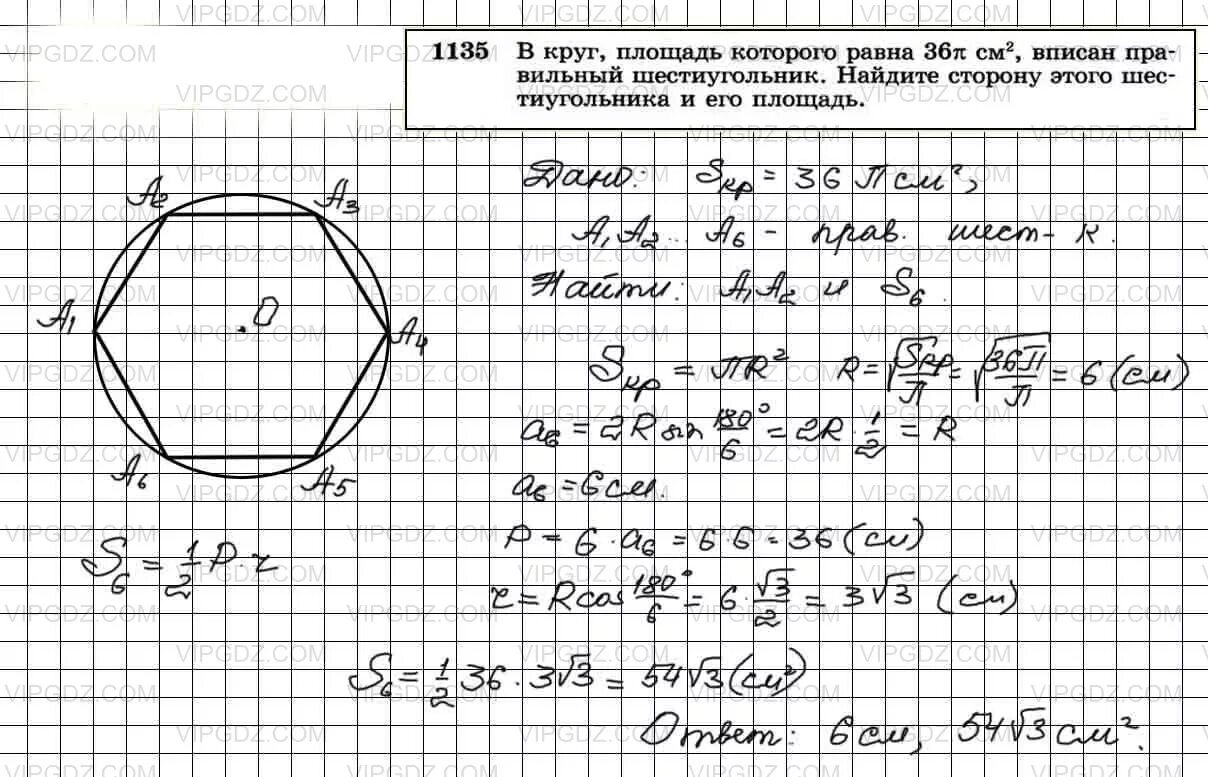 1135 В круг, площадь которого равна 36π см², вписан пра-
вильный шестиугольник. Найдите сторону этого шес-
тиугольника и его площадь.
Дано: Sкр = 36 П см²,
A₁A₂...A₆ - прав. шест-к.
Найти: A₁A₂ и S₆.
A₂ A₃
A₁ O A₄
A₆ A₅
Sкр = ПR² R = √(Sкр/П) = √(36П/П) = 6 (см)
a₆ = 2R sin 180°/6 = 2R · 1/2 = R
a₆ = 6 см.
P = 6 · a₆ = 6 · 6 = 36 (см)
S₆ = 1/2 P · r
r = R cos 180°/6 = 6 · √3/2 = 3√3 (см)
S₆ = 1/2 36 · 3√3 = 54√3 (см²)
Ответ: 6 см, 54√3 см².
VIPGDZ.COM